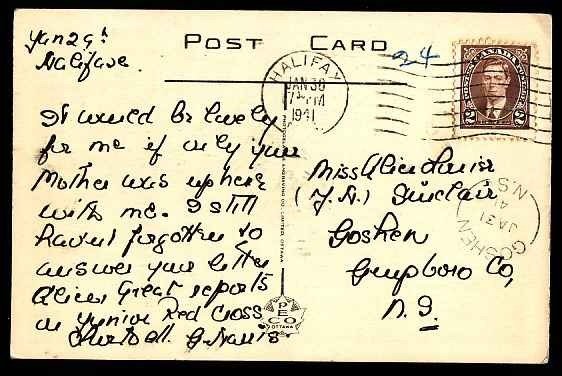 Jan 29th
Halifax.
POST CARD
24
HALIFAX
JAN 30
7 PM
1941
POSTES CANADA POSTAGE
2 2
It would be lovely
for me if only your
Mother was up here
with me. I still
haven't forgotten to
answer your letter
Alice. Great reports
on Junior Red Cross.
Cheerio all.
Miss Alice
(Y.A.) Sinclair
Goshen
Guysboro Co,
N.S.
GOSHEN
JA 31
41
N.S.
PHOTOGELATINE ENGRAVING CO. LIMITED, OTTAWA
PECO
OTTAWA